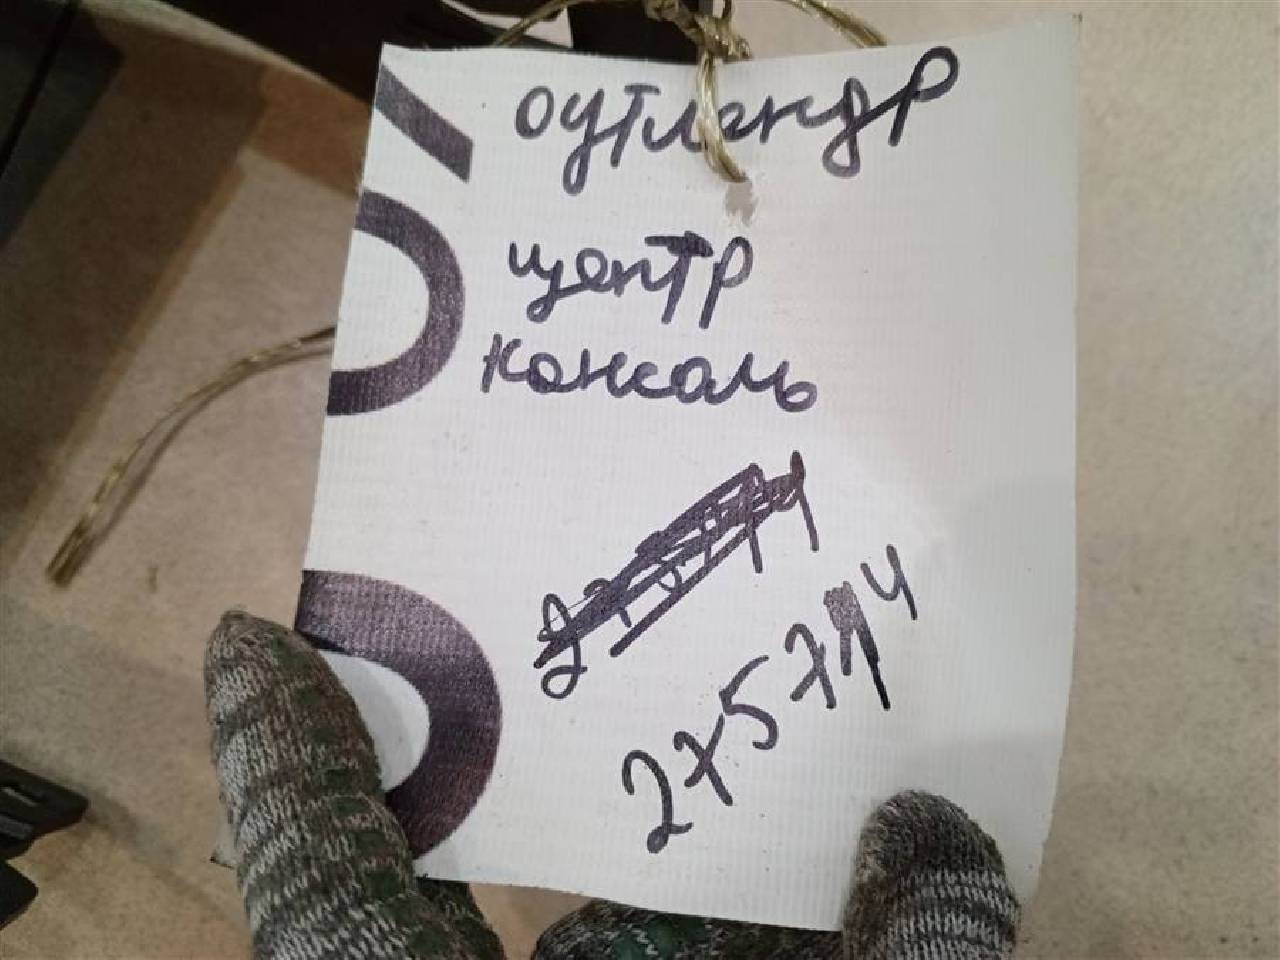 оутлендр
центр
консоль
275714